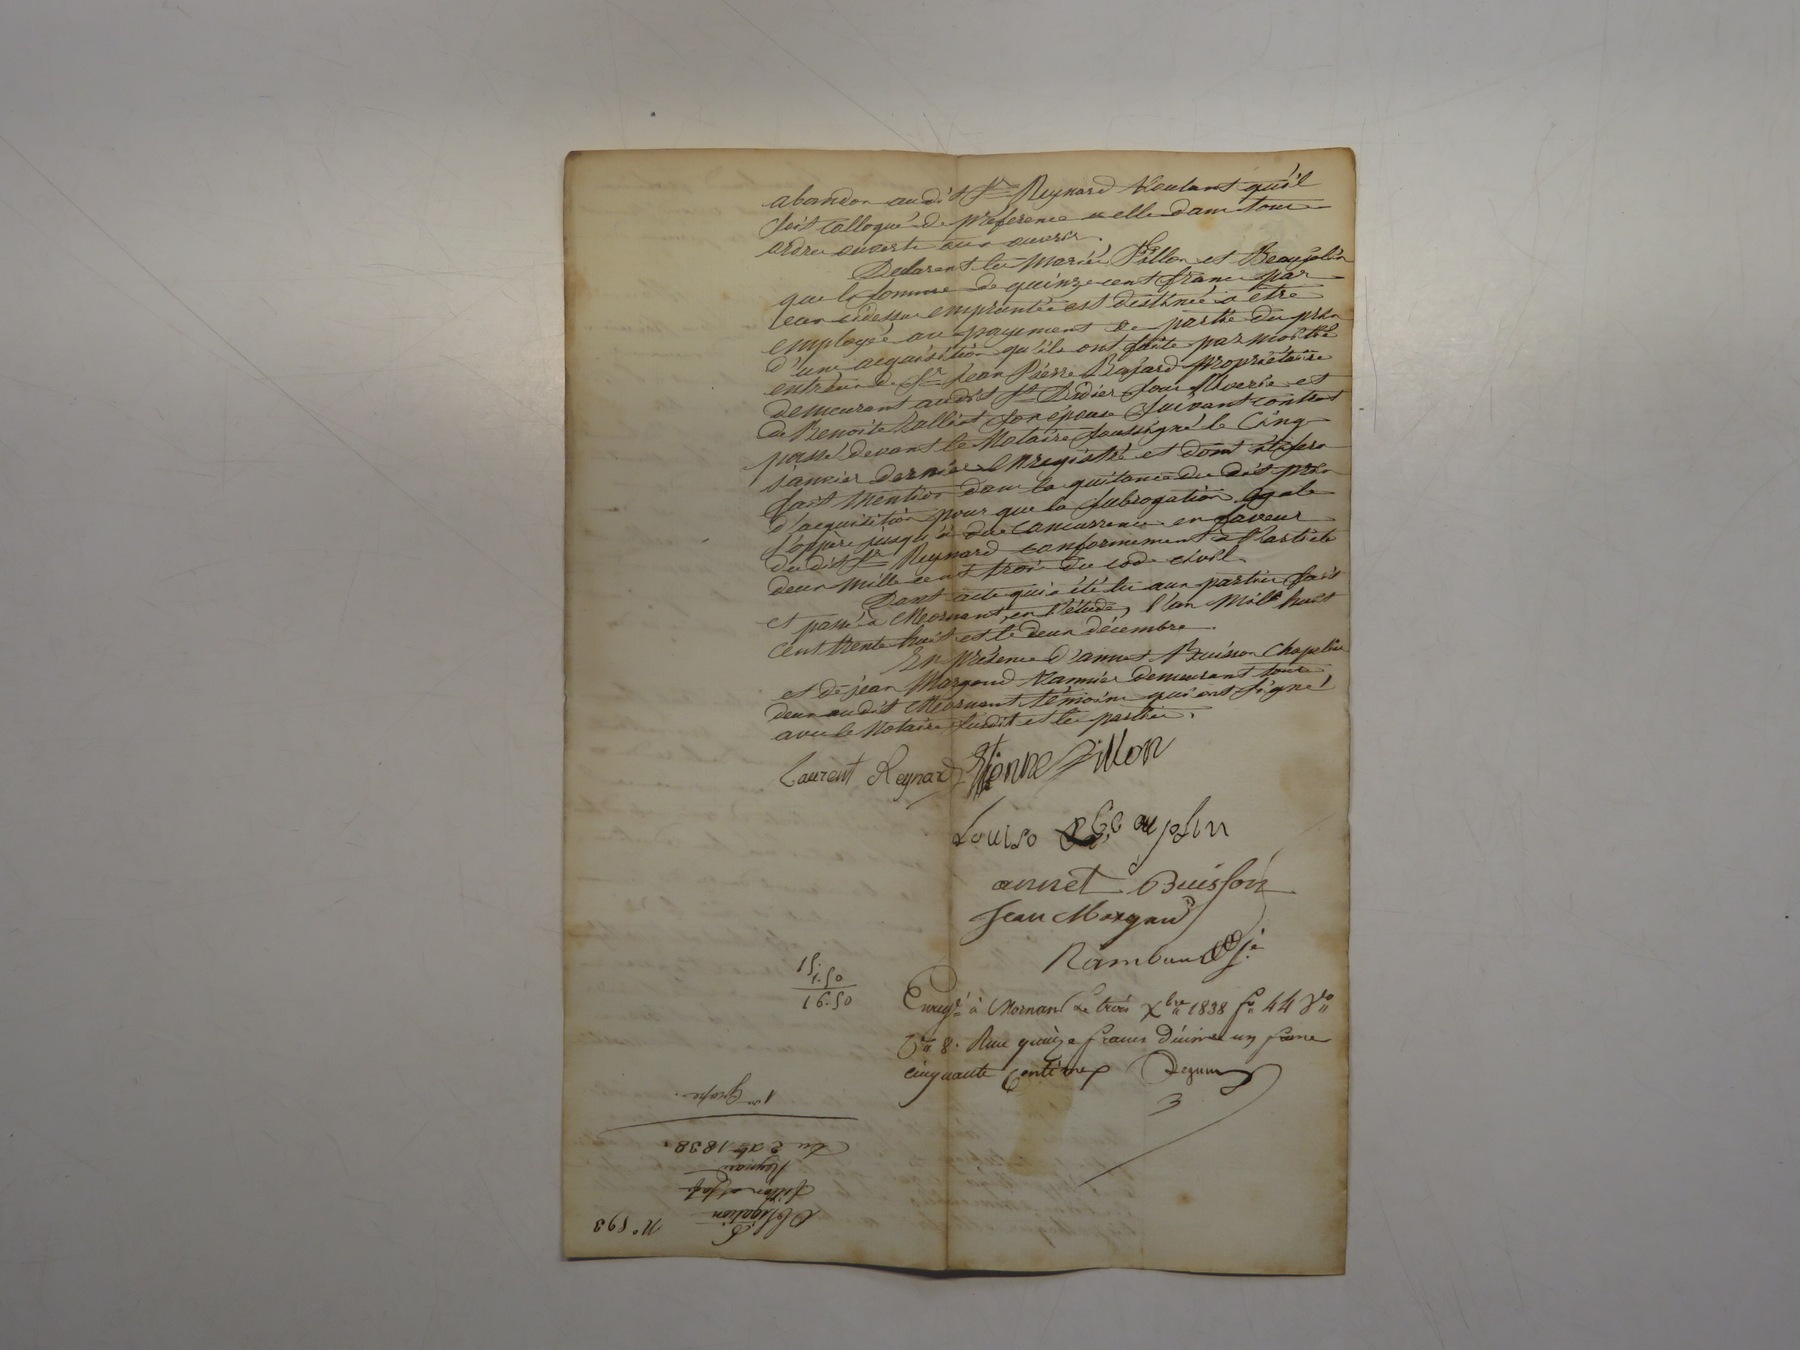 abandon audit Sr Reynard Voulant qu'il
soit colloqué de préférence a elle dans tous
ordres ouverts ou a ouvrir.
Declarent les Mariés Pillon et Beaujolin
que la somme de quinze cent francs par
eux cidessus empruntée est destinée a être
employée au payement de partie du prix
d'une acquisition qu'ils ont faite par moitié
entr'eux de Sr Jean Pierre propriétaire
demeurant audit St Didier sous Riverie et
de Benoite son épouse suivant contrat
passé devant le Notaire soussigné le Cinq
janvier dernier Enregistré et dont il sera
fait Mention dans la quittance du dit prix
d'acquisition pour que la subrogation légale
s'oppère jusqu'à due concurrence en faveur
du dit Sr Reynard conformement a l'article
deux mille cent trois du code civil.
Dont acte qui a été lu aux parties fait
et passé à Mornant, en l'étude, l'an Mil huit
cent trente huit et le deux décembre.
En présence d'annet Buisson Chapelier
et de jean Margaud Vannier demeurant tous
deux audit Mornant témoins qui ont signé
avec le Notaire susdit et les parties.
Laurent Reynard Etienne Pillon
Louise Beaujolin
annet Buisson
Jean Margaud
Rambaud
15.
1.50
16.50
Enregé à Mornant Le trois Xbre 1838 fo 44 Vo
Ce 8. Reçu quinze francs Décime un franc
cinquante Centimes
3
1re Grosse.
Du 2 Xbre 1838.
Reynard
Pillon et
Obligation
N° 593